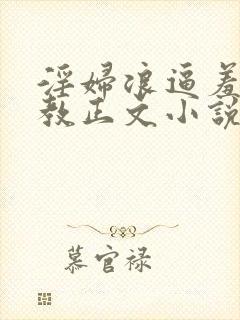 淫婦浪逼羞
教正文小說
慕官禄